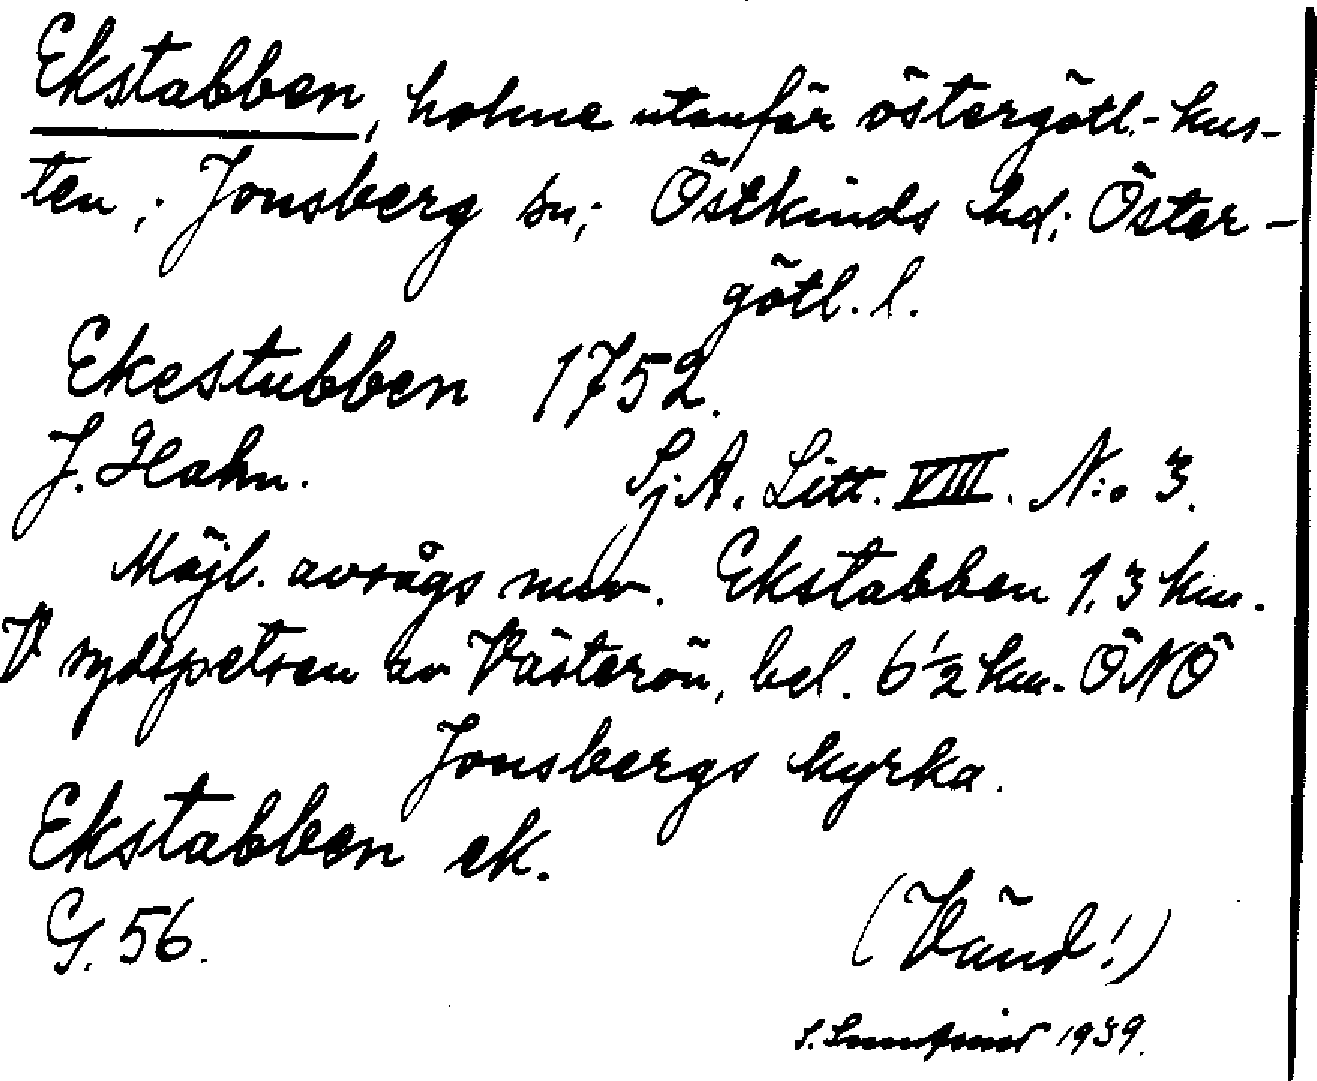 Ekstabben, holme utanför östergötl.-kus-
ten; Jonsberg sn; Östkinds hd; Öster-
götl. l.
Ekestubben 1752.
J. Hahn. Sj.A. Litt. VIII. N:o 3.
Möjl. avsågs nuv. Ekstabben 1,3 km.
V sydspetsen av Västerön, bel. 6 1/2 km. ÖNÖ
Jonsbergs kyrka.
Ekstabben ek.
G. 56.
(Vänd!)
S. 1939.